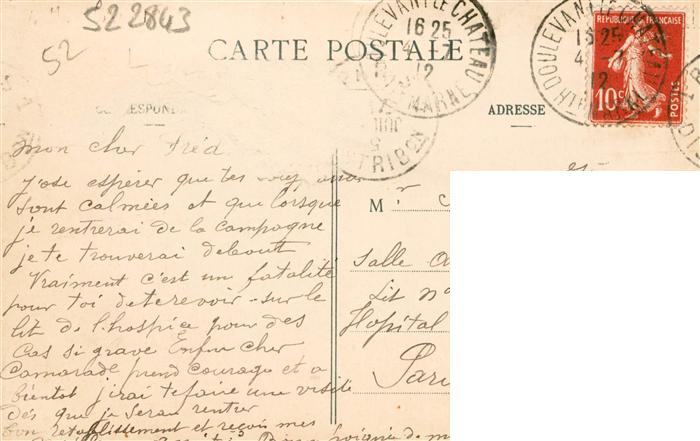 522843
52
CARTE POSTALE
CORRESPONDA
ADRESSE
DOULEVANT LE CHATEAU
16 25
4
12
HTE MARNE
DOULEVANT LE CHATEAU
16 25
4
12
HTE MARNE
DISTRIBON
REPUBLIQUE FRANÇAISE
10c
POSTES
Mon cher Fréd
J'ose espérer que tes
sont calmées et que lorsque
je rentrerai de la campagne
je te trouverai deboutt
Vraiment c'est un fatalité
pour toi de terevoir sur le
lit de l'hospice pour des
cas si grave Enfin cher
Camarade prend courage et a
bientot j'irai te faire une visite
Dés que je serau rentrer
bon retablissement et reçois mes
poignée de m
Mr
Salle
Lit No
Hopital
Pari